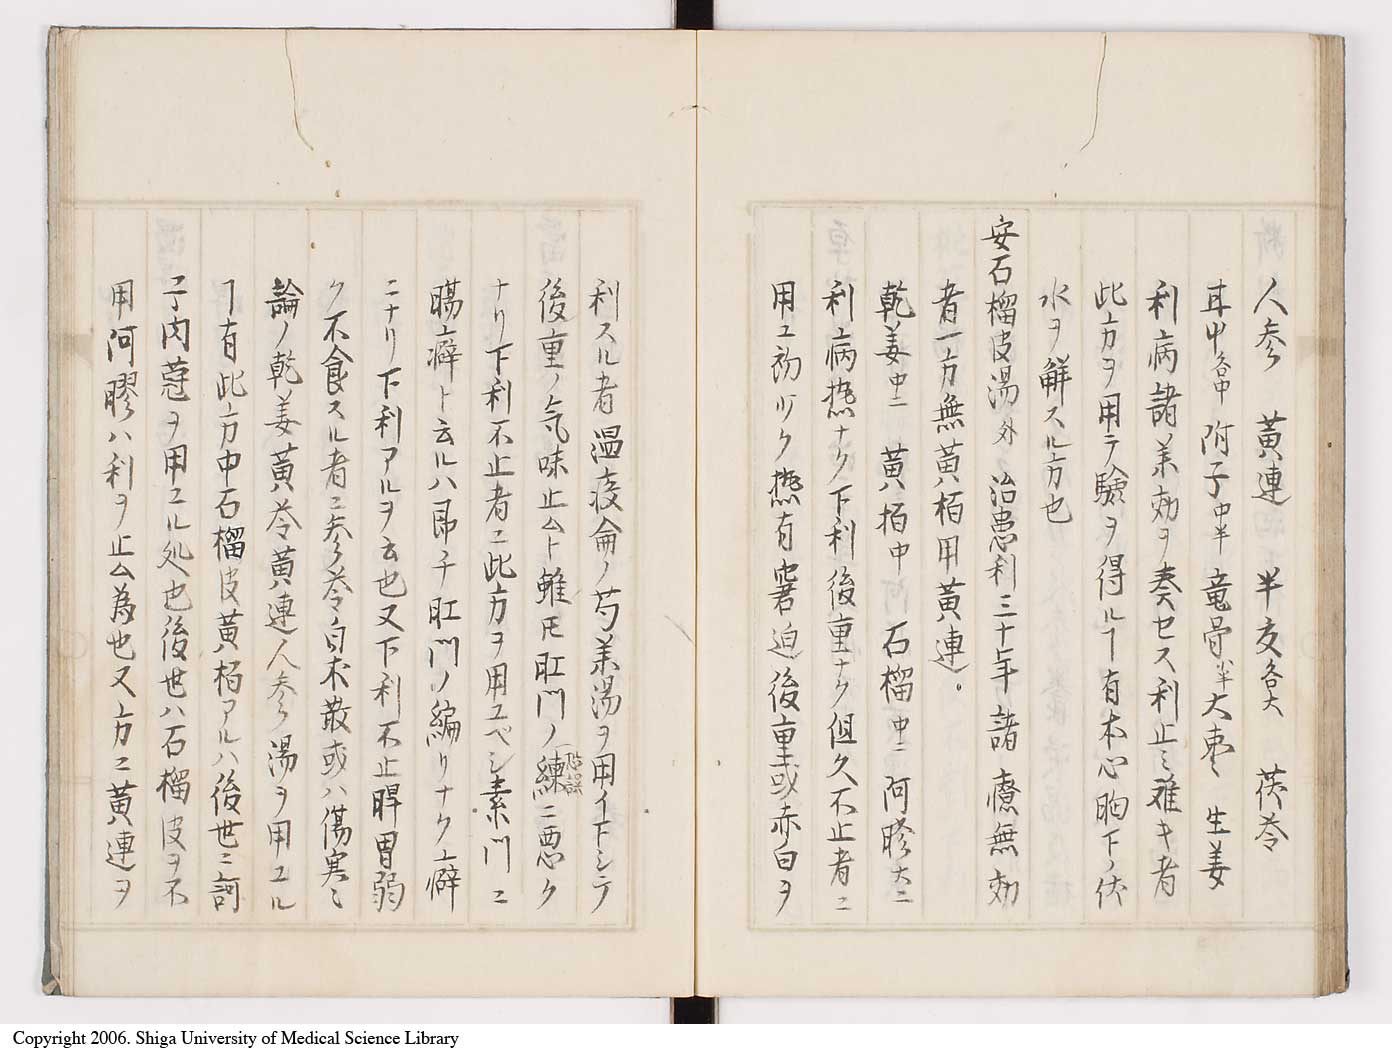 人参 黄連 半夏各大 茯苓
甘中各中 附子中半 竜骨半 大枣 生姜
利病諸薬効ヲ奏セス利止ミ难キ者
此方ヲ用テ驗ヲ得ルヿ有本心胸下ノ伏
水ヲ觧スル方也
安石榴皮湯外 治患利三十年諸療無効
者一方無黄栢用黄連。
乾姜中二 黄栢中 石榴中二 阿膠大二
利病熱ナク下利後重ナク但久不止者ニ
用ユ初少ク熱有窘迫後重或赤白ヲ
利スル者温疫侖ノ芍薬湯ヲ用イ下シテ
後重ノ気味止ムト雖𪜈肛門ノ練ニ悪ク
ナリ下利不止者ニ此方ヲ用ユベシ素門ニ
腸癖ト云ルハ即チ肛門ノ編リナク癖
ニナリ下利アルヲ云也又下利不止脾胃弱
ク不食スル者ニ参苓白朮散或ハ傷寒
論ノ乾姜黄芩黄連人参湯ヲ用ユル
ヿ有此方中石榴皮黄栢アルハ後世ニ訶
子肉蔲ヲ用ユル処也後世ハ石榴皮ヲ不
用阿膠ハ利ヲ止ム為也又方ニ黄連ヲ
Copyright 2006. Shiga University of Medical Science Library